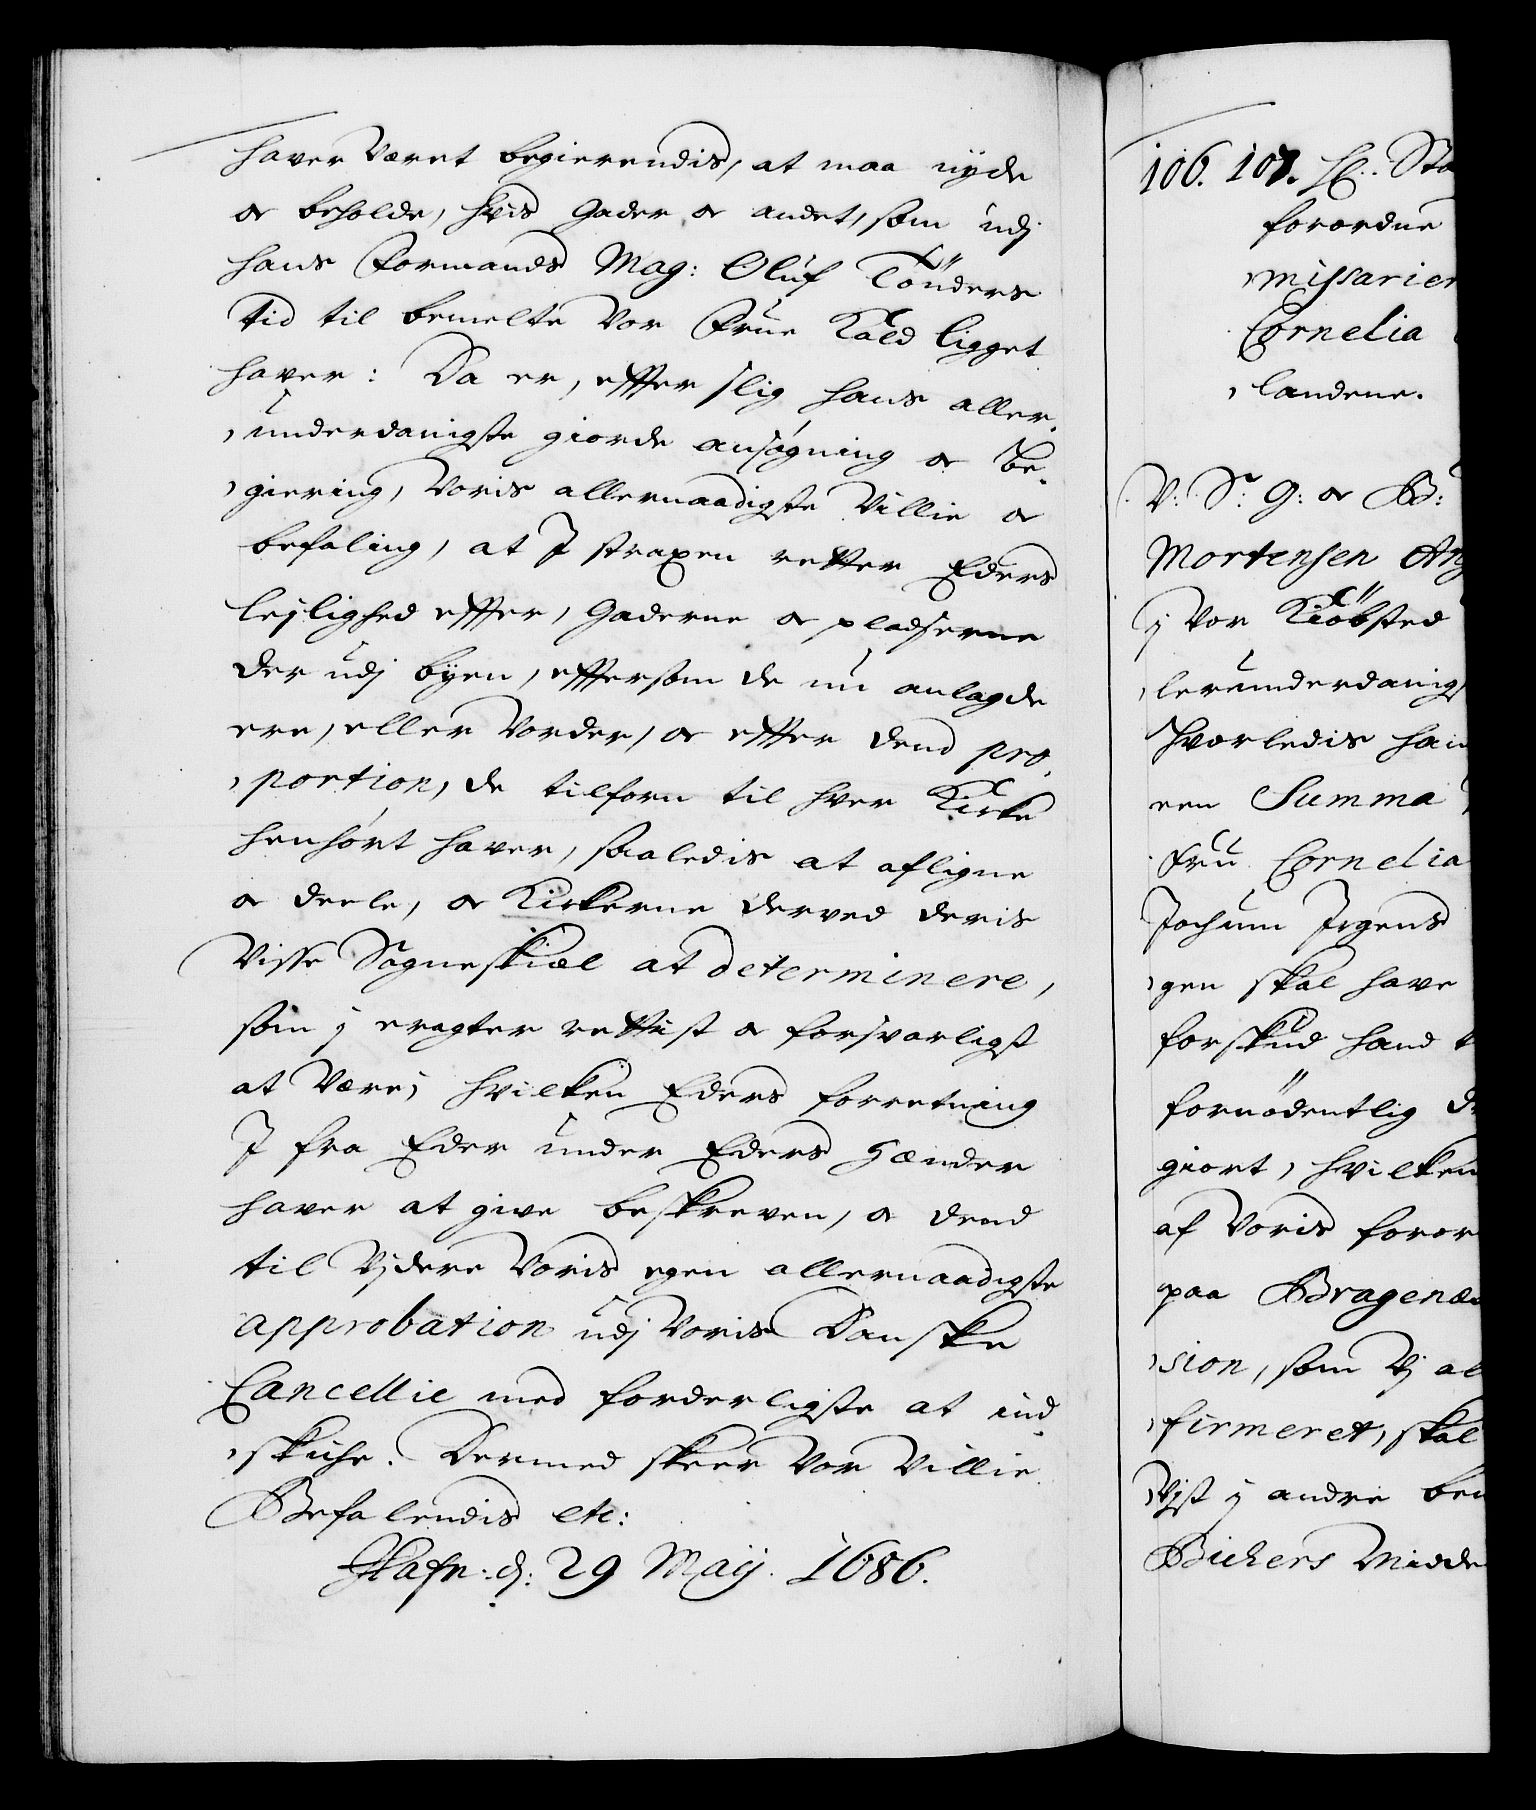 hafver Været begierendis, at maa nyde
oc beholde, hvis Gader oc andet, som udj
hans Formands Mag: Oluf Tönders
tid til bemelte Vor Frue Kald ligget
hafver: Da er, effter slig hans aller-
underdanigste giorde ansøgning oc be-
giering, Voris allernaadigste Villie oc
befaling, at I straxen retter Eders
lejlighed effter, Gaderne oc pladserne
der udj byen, effersom de nu anlagde
ere, eller Vorder, oc effter dend pro-
portion, de tilforn til hver Kirke
henhørt hafver, saaledis at afligne
oc deele, oc Kirkerne derved deris
Visse Sogneskiæl at determinere,
som j eragter rettist oc forsvarligst
at være; hvilken Eders forretning
I fra Eder under Eders Hænder
hafver at give beskreven, oc dend
til Vjdere Voris egen allernaadigste
approbation udj Voris Danske
Cancellie med forderligste at ind-
skiche. Dermed skeer Vor Villie
Befalendis etc:
Hafn: d: 29 Maij. 1686.
106. 107. Sl. Sta
forordne
missarier
Cornelia
landene.
V: S: G: oc B:
Mortensen
j Vor Kiöbsted
lerunderdanigst
Hvorledis han
een Summa
Fru Cornelia
Jochum Irgens
gen skal have
forskud hand
fornödentlig
giort, hvilken
af Voris foror
paa Bragenæs
sion, som Vj al
firmeret, skal
Vist j andre
Bichers Midde